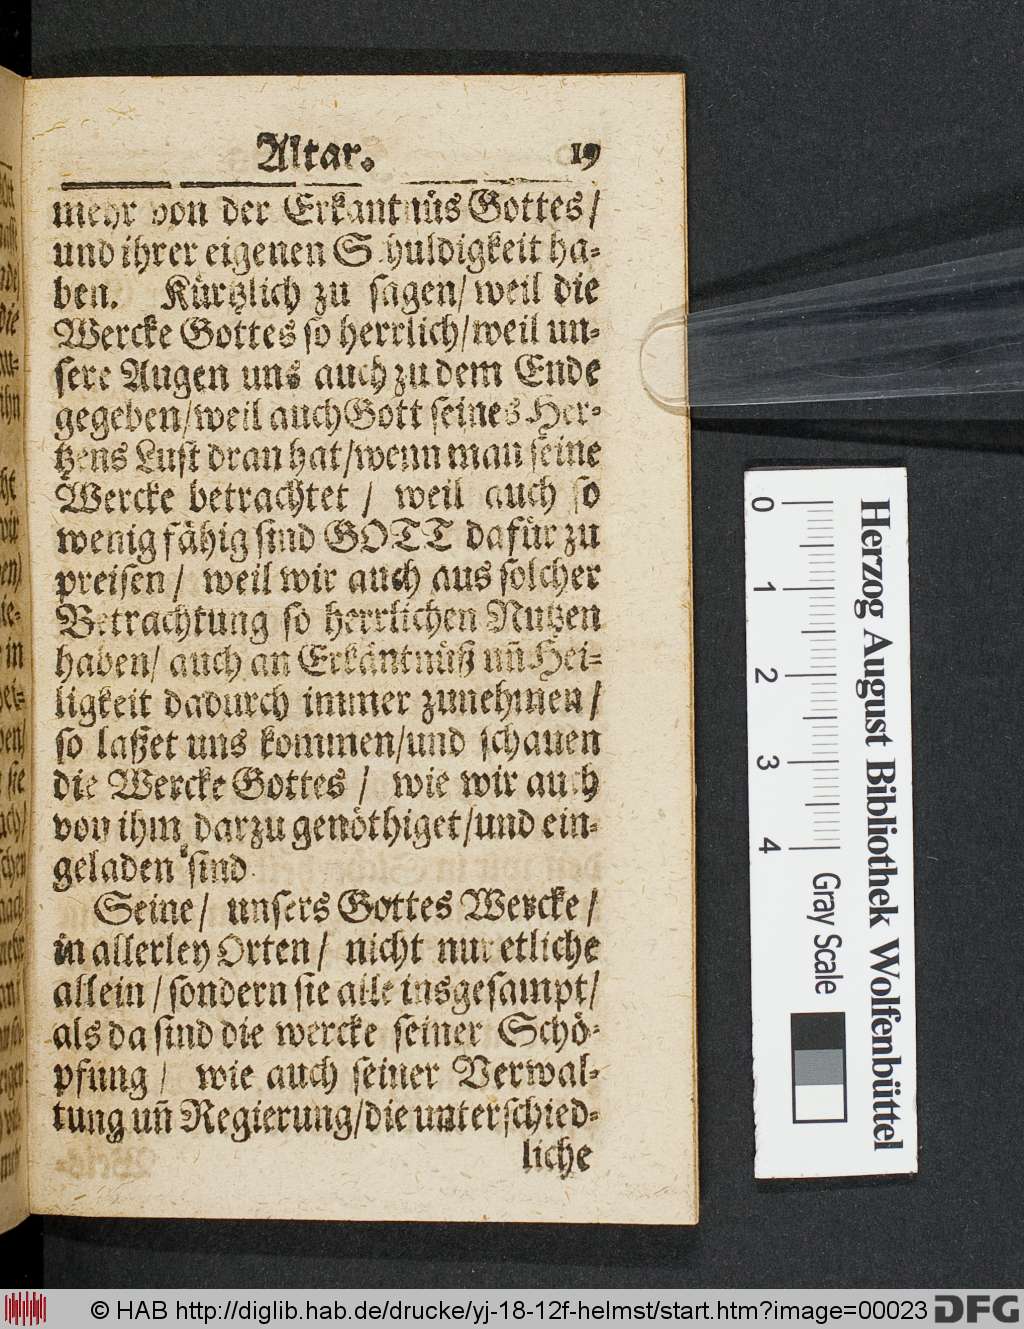 Altar. 19
mehr von der Erkantnüs Gottes/
und ihrer eigenen Schuldigkeit ha-
ben. Kürtzlich zu sagen/ weil die
Wercke Gottes so herrlich/ weil un-
sere Augen uns auch zu dem Ende
gegeben/ weil auch Gott seines Her-
tzens Lust dran hat/ wenn man seine
Wercke betrachtet / weil auch so
wenig fähig sind GOTT dafür zu
preisen / weil wir auch aus solcher
Betrachtung so herrlichen Nutzen
haben/ auch an Erkäntnüß uñ Hei-
ligkeit dadurch immer zunehmen /
so laßet uns kommen/ und schauen
die Wercke Gottes / wie wir auch
von ihm darzu genöthiget/ und ein-
geladen sind.
Seine/ unsers Gottes Wercke /
in allerley Orten / nicht nur etliche
allein / sondern sie alle insgesampt/
als da sind die wercke seiner Schö-
pfung / wie auch seiner Verwal-
tung uñ Regierung/ die unterschied-
liche
0 1 2 3 4
Herzog August Bibliothek Wolfenbüttel
Gray Scale
© HAB http://diglib.hab.de/drucke/yj-18-12f-helmst/start.htm?image=00023 DFG